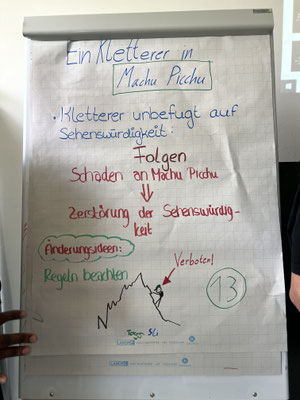 Ein Kletterer in
Machu Picchu
· Kletterer unbefugt auf
Sehenswürdigkeit:
Folgen
Schaden an Machu Picchu
⇓
Zerstörung der Sehenswürdig-
keit
Änderungsideen:
Regeln beachten
Verboten!
13